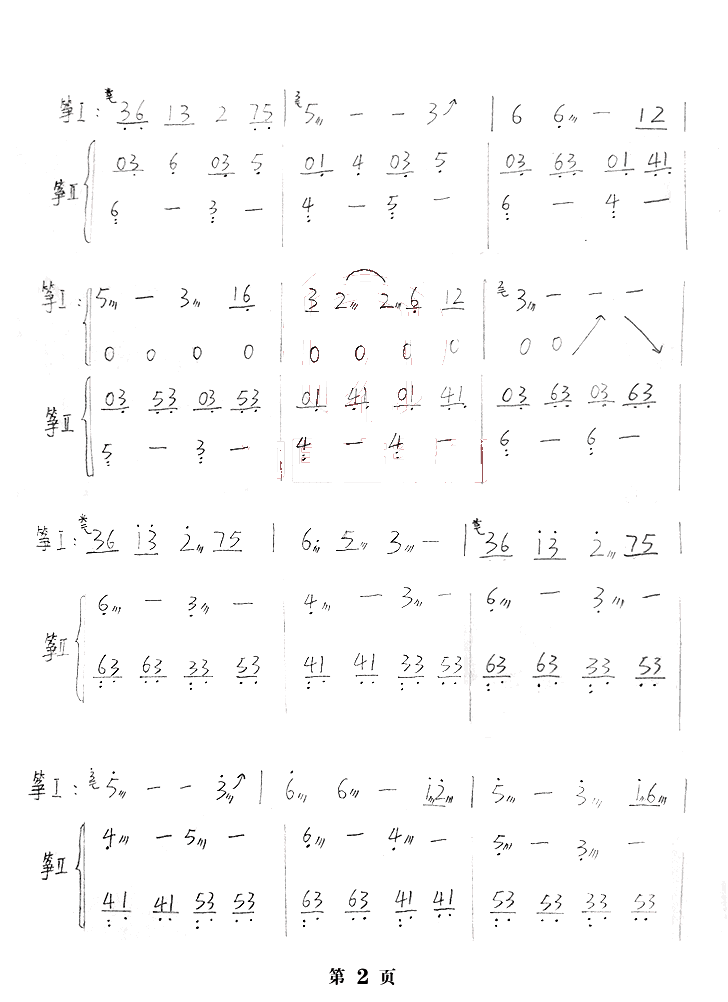 筝Ⅰ: 36 13 2 75 | 5/// - - 3↗ | 6 6/// - 12 |
筝Ⅱ 03 6 03 5 01 4 03 5 03 63 01 41
6 - 3 - 4 - 5 - 6 - 4 -
筝Ⅰ: 5/// - 3/// 16 3 2/// 2/// 6 12 3/// - - -
0 0 0 0 0 0 0 0 0 0 ↗ ↘
筝Ⅱ 03 53 03 53 01 41 01 41 03 63 03 63
5 - 3 - 4 - 4 - 6 - 6 -
筝Ⅰ: 36 i̇3̇ 2̇/// 75 | 6/// 5/// 3/// - | 36 i̇3̇ 2̇/// 75 |
6/// - 3/// - 4/// - 3/// - 6/// - 3/// -
筝Ⅱ 63 63 33 53 41 41 33 53 63 63 33 53
筝Ⅰ: 5̇/// - - 3̇///↗ | 6̇/// 6/// - i̇///2̇/// | 5̇/// - 3̇/// i̇///6/// |
筝Ⅱ 4/// - 5/// - 6/// - 4/// - 5/// - 3/// -
41 41 53 53 63 63 41 41 53 53 33 53
第 2 页